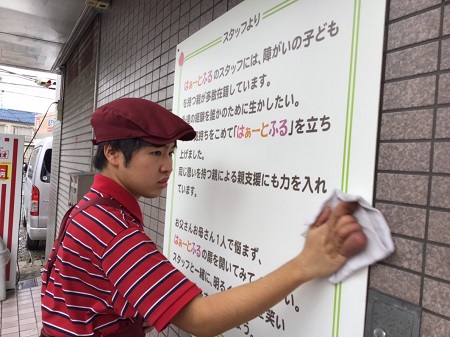 スタッフより
はぁーとふるのスタッフには、障がいの子ども
を持つ親が多数在籍しています。
経験を誰かのために生かしたい。
気持ちをこめて「はぁーとふる」を立ち
上げました。
同じ思いを持つ親による親支援にも力を入れ
ています。
お父さんお母さん1人で悩まず、
はぁーとふるの扉を開いてみて
スタッフと一緒に、明る
笑い